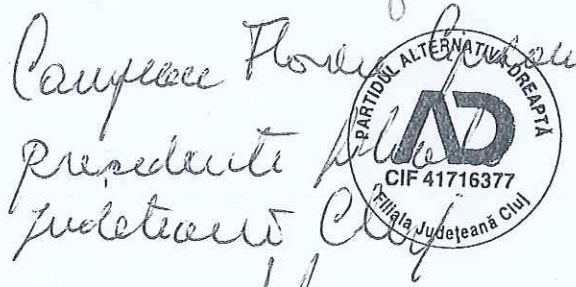 Campean Florin Ciprian
președinte filiala
județeană Cluj
PARTIDUL ALTERNATIVA DREAPTĂ
AD
CIF 41716377
Filiala Județeană Cluj